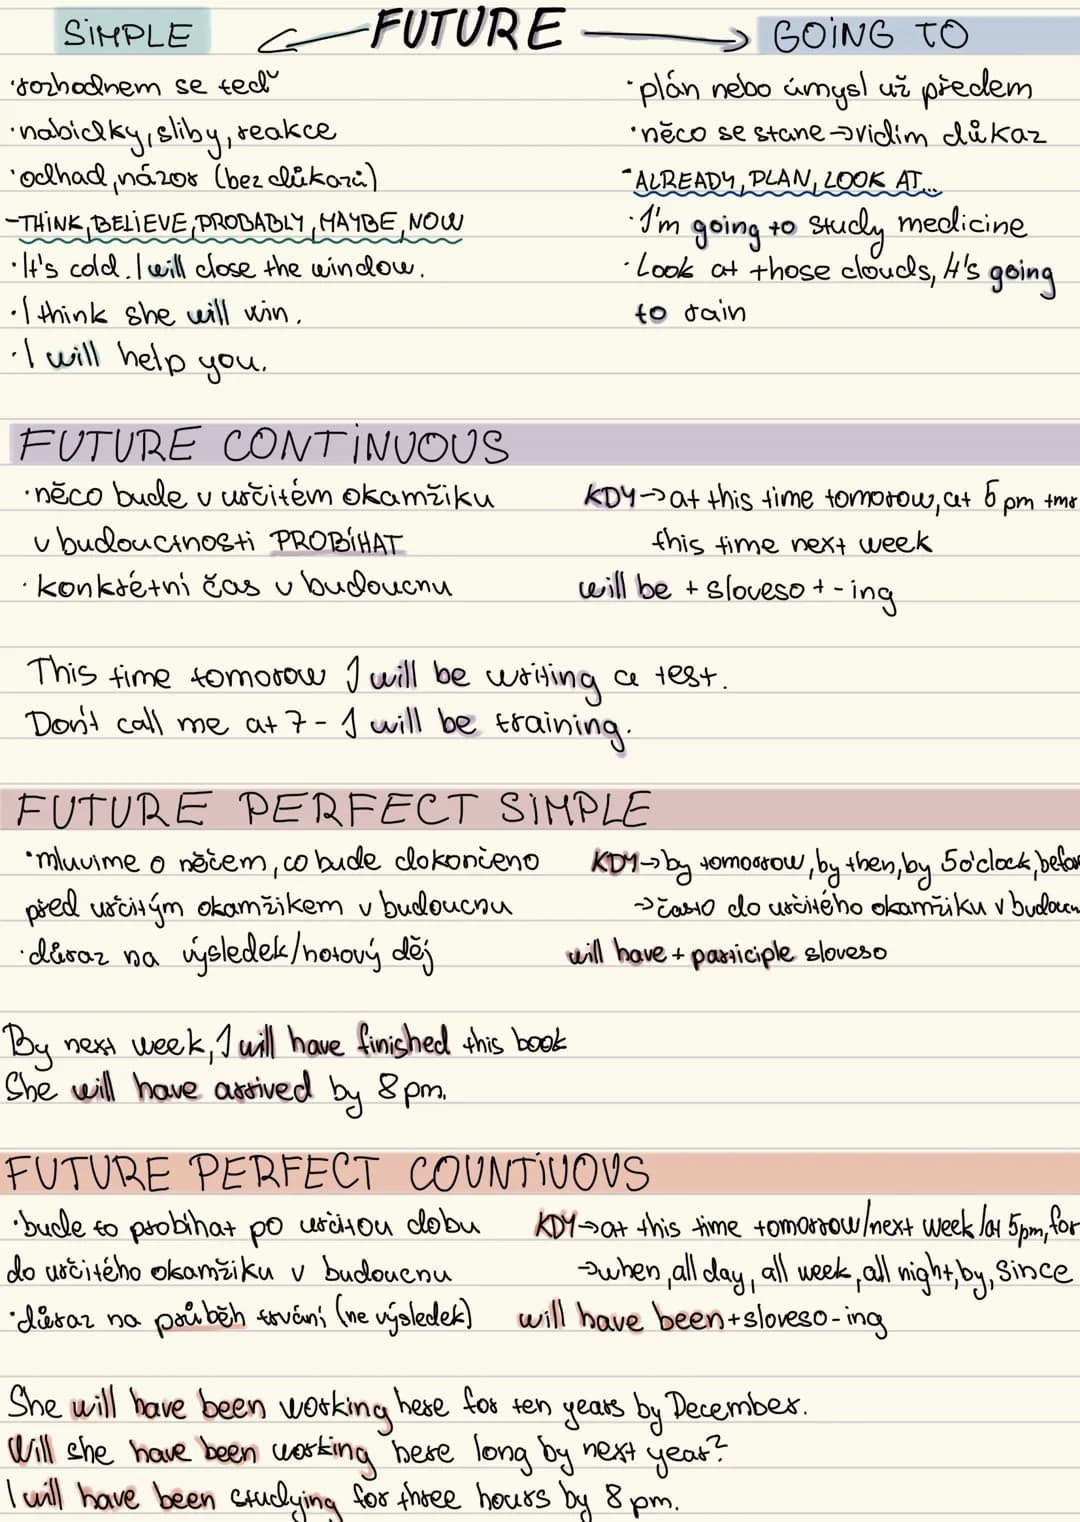 SIMPLE ← FUTURE → GOING TO
·rozhodnem se teď
·nabídky, sliby, reakce
·odhad, názor (bez důkazů)
-THINK, BELIEVE, PROBABLY, MAYBE, NOW
·It's cold. I will close the window.
·I think she will win.
·I will help you.
·plán nebo úmysl už předem
·něco se stane→vidim důkaz
-ALREADY, PLAN, LOOK AT...
·I'm going to study medicine
·Look at those clouds, it's going
to rain
FUTURE CONTINUOUS
·něco bude v určitém okamžiku
v budoucnosti PROBÍHAT
·konkrétní čas v budoucnu
KDY→at this time tomorow, at 5 pm tmr
this time next week
will be + sloveso + -ing
This time tomorow I will be writing a test.
Don't call me at 7 - I will be training.
FUTURE PERFECT SIMPLE
·mluvime o něčem, co bude dokončeno
před určitým okamžikem v budoucnu
·důraz na výsledek/hotový děj
KDY→by tomorrow, by then, by 5o'clock, before
→často do určitého okamžiku v budoucn
will have + participle sloveso
By next week, I will have finished this book
She will have arrived by 8 pm.
FUTURE PERFECT COUNTINUOUS
·bude to probíhat po určitou dobu
do určitého okamžiku v budoucnu
·důraz na průběh trvání (ne výsledek)
KDY→at this time tomorrow/next week/at 5pm, for
→when, all day, all week, all night, by, since
will have been+sloveso-ing
She will have been working here for ten years by December.
Will she have been working here long by next year?
I will have been studying for three hours by 8 pm.